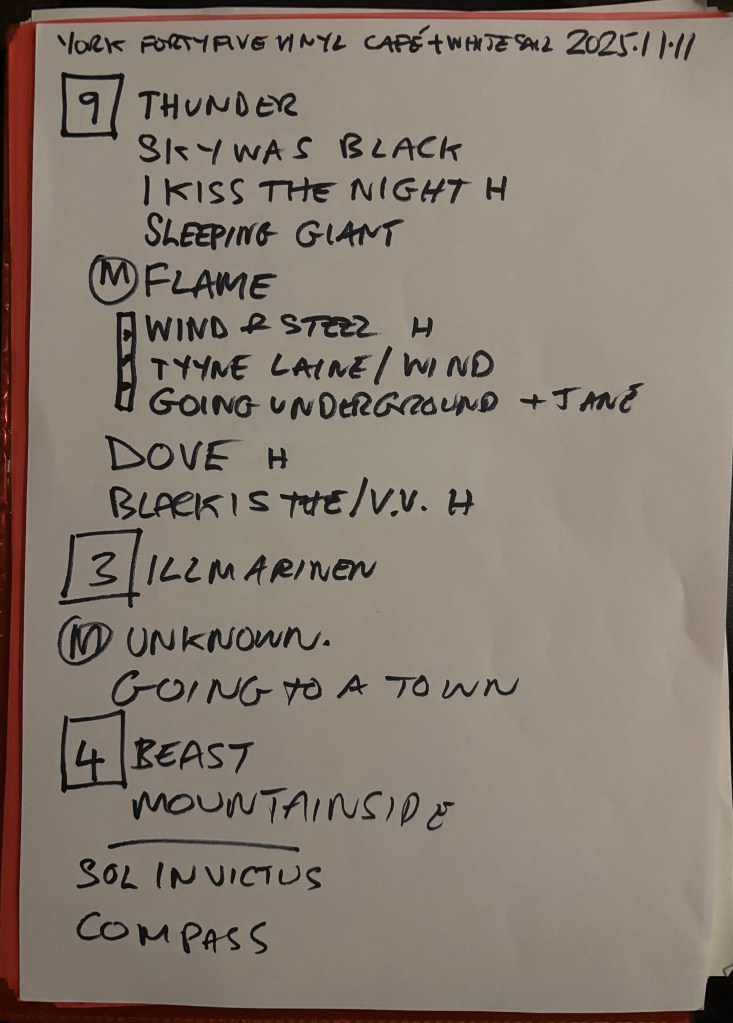 YORK FORTYFIVE VINYL CAFÉ + WHITE SAIL 2025.11.11
9 THUNDER
SKY WAS BLACK
I KISS THE NIGHT H
SLEEPING GIANT
M FLAME
WIND & STEEL H
TYYNE LAINE/WIND
GOING UNDERGROUND + JANE
DOVE H
BLACK IS THE/V.V. H
3 ILLMARINEN
M UNKNOWN.
GOING TO A TOWN
4 BEAST
MOUNTAINSIDE
SOL INVICTUS
COMPASS